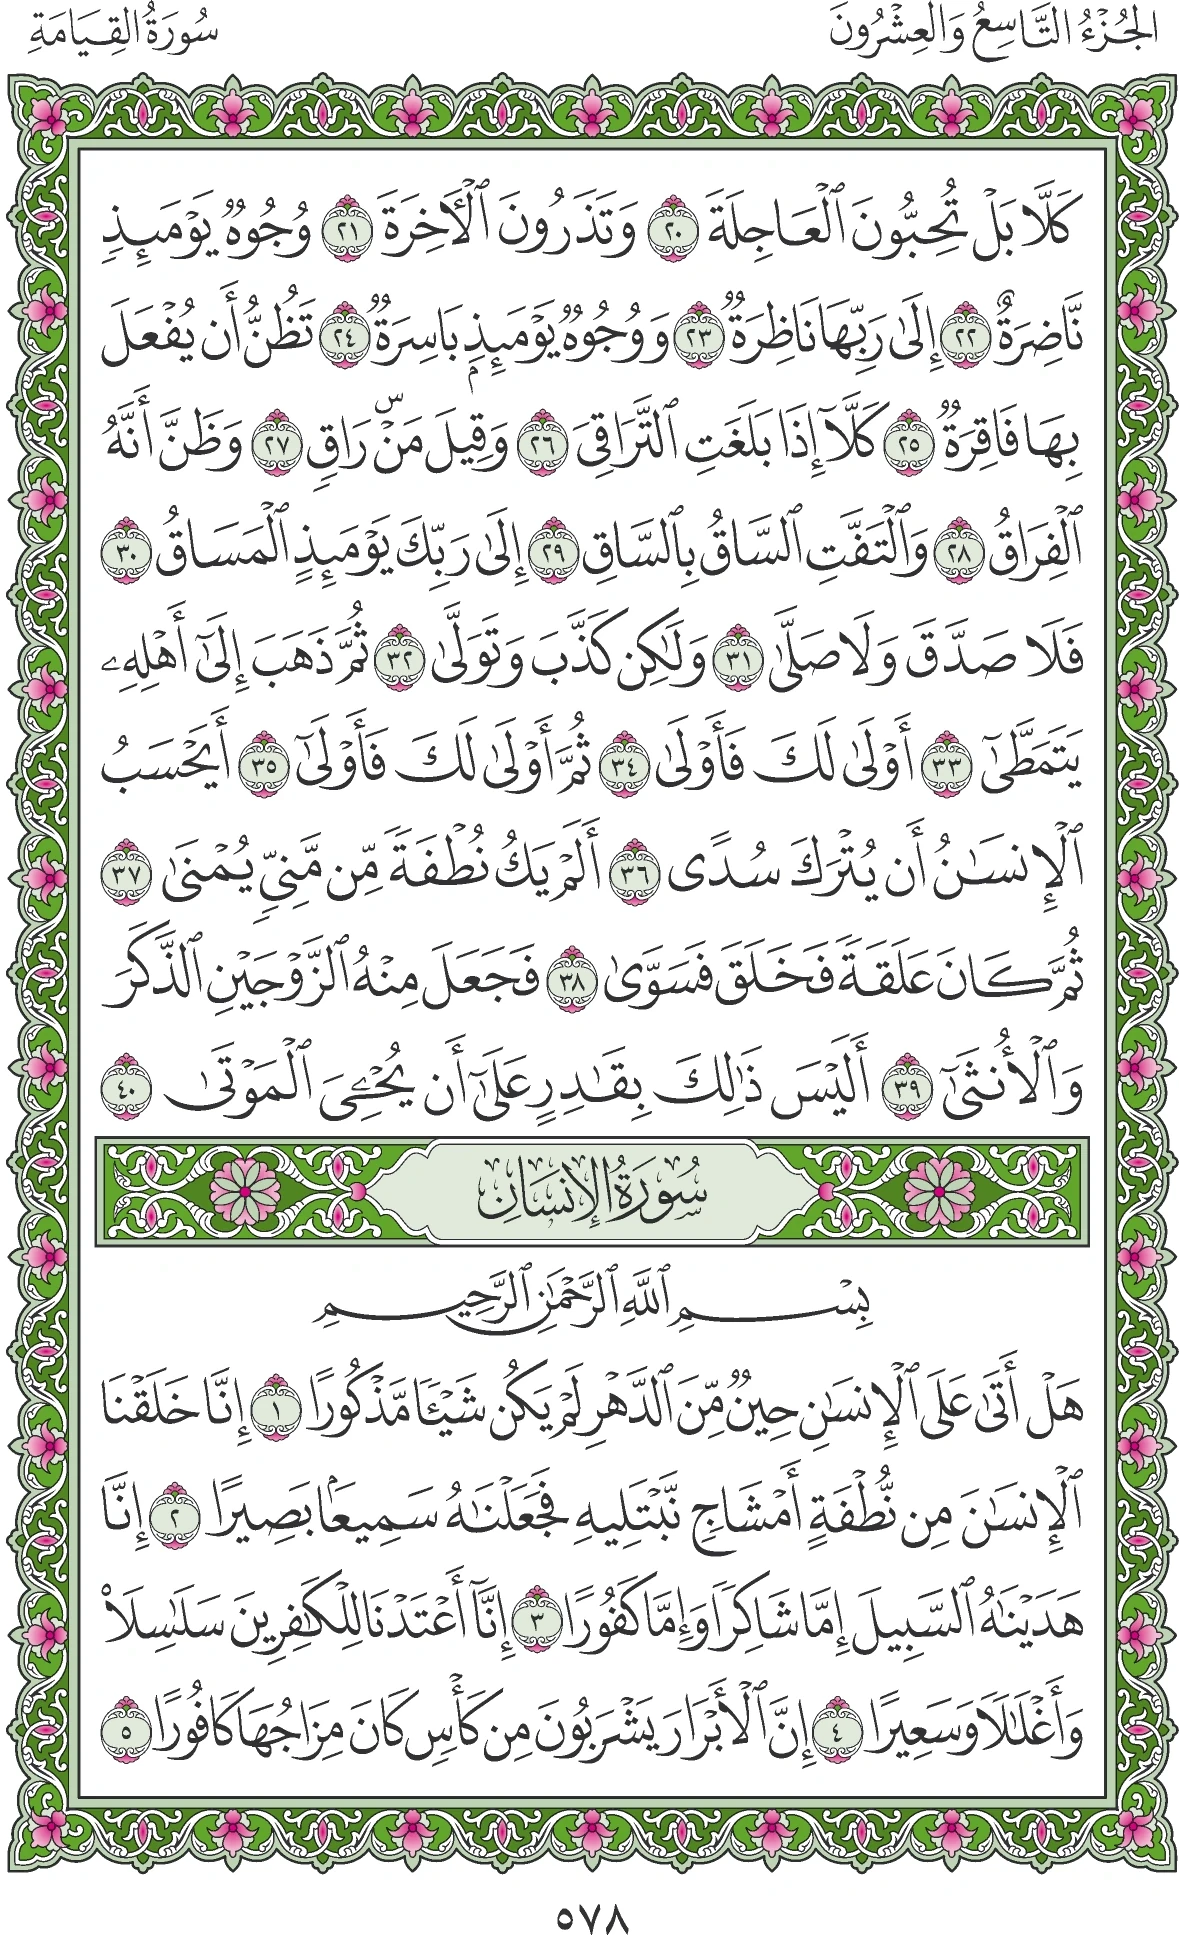 الجُزْءُ التَّاسِعُ وَالعِشْرُونَ
سُورَةُ القِيَامَةِ
كَلَّا بَلْ تُحِبُّونَ ٱلْعَاجِلَةَ ٢٠ وَتَذَرُونَ ٱلْأٓخِرَةَ ٢١ وُجُوهٌ يَوْمَئِذٍ
نَّاضِرَةٌ ٢٢ إِلَىٰ رَبِّهَا نَاظِرَةٌ ٢٣ وَوُجُوهٌ يَوْمَئِذِۭ بَاسِرَةٌ ٢٤ تَظُنُّ أَن يُفْعَلَ
بِهَا فَاقِرَةٌ ٢٥ كَلَّآ إِذَا بَلَغَتِ ٱلتَّرَاقِىَ ٢٦ وَقِيلَ مَنْۜ رَاقٍ ٢٧ وَظَنَّ أَنَّهُ
ٱلْفِرَاقُ ٢٨ وَٱلْتَفَّتِ ٱلسَّاقُ بِٱلسَّاقِ ٢٩ إِلَىٰ رَبِّكَ يَوْمَئِذٍ ٱلْمَسَاقُ ٣٠
فَلَا صَدَّقَ وَلَا صَلَّىٰ ٣١ وَلَٰكِن كَذَّبَ وَتَوَلَّىٰ ٣٢ ثُمَّ ذَهَبَ إِلَىٰٓ أَهْلِهِۦ
يَتَمَطَّىٰٓ ٣٣ أَوْلَىٰ لَكَ فَأَوْلَىٰ ٣٤ ثُمَّ أَوْلَىٰ لَكَ فَأَوْلَىٰٓ ٣٥ أَيَحْسَبُ
ٱلْإِنسَٰنُ أَن يُتْرَكَ سُدًى ٣٦ أَلَمْ يَكُ نُطْفَةً مِّن مَّنِىٍّ يُمْنَىٰ ٣٧
ثُمَّ كَانَ عَلَقَةً فَخَلَقَ فَسَوَّىٰ ٣٨ فَجَعَلَ مِنْهُ ٱلزَّوْجَيْنِ ٱلذَّكَرَ
وَٱلْأُنثَىٰٓ ٣٩ أَلَيْسَ ذَٰلِكَ بِقَٰدِرٍ عَلَىٰٓ أَن يُحْـِۧىَ ٱلْمَوْتَىٰ ٤٠
سُورَةُ الإِنسَانِ
بِسْمِ ٱللَّهِ ٱلرَّحْمَٰنِ ٱلرَّحِيمِ
هَلْ أَتَىٰ عَلَى ٱلْإِنسَٰنِ حِينٌ مِّنَ ٱلدَّهْرِ لَمْ يَكُن شَيْـًٔا مَّذْكُورًا ١ إِنَّا خَلَقْنَا
ٱلْإِنسَٰنَ مِن نُّطْفَةٍ أَمْشَاجٍ نَّبْتَلِيهِ فَجَعَلْنَٰهُ سَمِيعَۢا بَصِيرًا ٢ إِنَّا
هَدَيْنَٰهُ ٱلسَّبِيلَ إِمَّا شَاكِرًا وَإِمَّا كَفُورًا ٣ إِنَّآ أَعْتَدْنَا لِلْكَٰفِرِينَ سَلَٰسِلَا۟
وَأَغْلَٰلًا وَسَعِيرًا ٤ إِنَّ ٱلْأَبْرَارَ يَشْرَبُونَ مِن كَأْسٍ كَانَ مِزَاجُهَا كَافُورًا ٥
٥٧٨